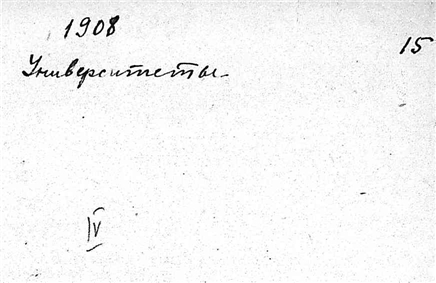 1908
15
Университеты
IV